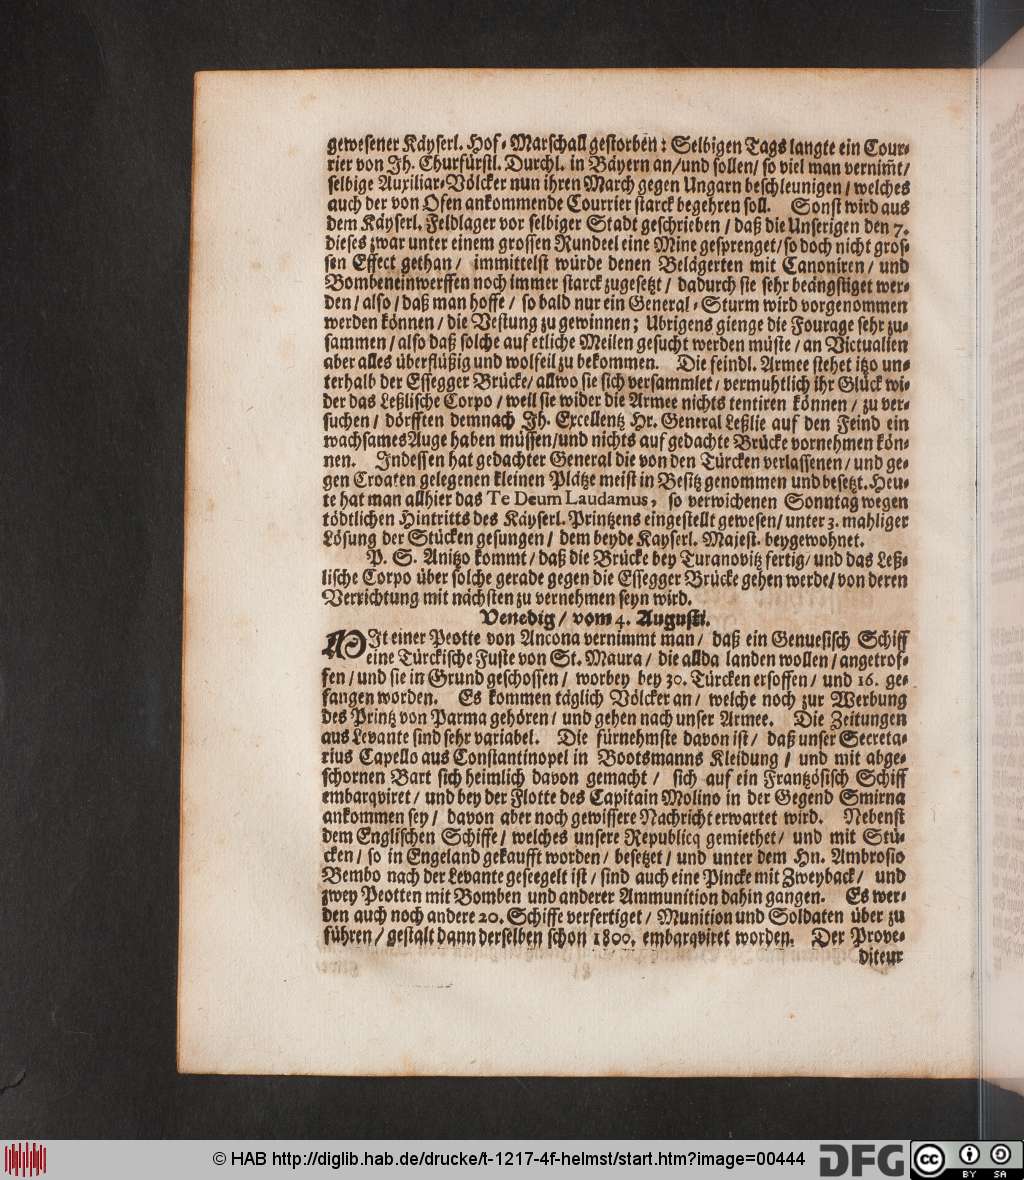 gewesener Käyserl. Hof-Marschall gestorben: Selbigen Tags langte ein Cour-
rier von Jh. Churfürstl. Durchl. in Bäyern an/und sollen/ so viel man vernim̃t/
selbige Auxiliar-Völcker nun ihren March gegen Ungarn beschleunigen/ welches
auch der von Ofen ankommende Courrier starck begehren soll. Sonst wird aus
dem Käyserl. Feldlager vor selbiger Stadt geschrieben/ daß die Unserigen den 7.
dieses zwar unter einem grossen Rundeel eine Mine gesprenget/so doch nicht gros-
sen Effect gethan/ immittelst würde denen Belägerten mit Canoniren/ und
Bombeneinwerffen noch immer starck zugesetzt/ dadurch sie sehr beängstiget wer-
den/ also/ daß man hoffe/ so bald nur ein General-Sturm wird vorgenommen
werden können/ die Vestung zu gewinnen; Ubrigens gienge die Fourage sehr zu-
sammen/ also daß solche auf etliche Meilen gesucht werden müste/ an Victualien
aber alles überflüßig und wolfeil zu bekommen. Die feindl. Armee stehet itzo un-
terhalb der Essegger Brücke/ allwo sie sich versammlet/ vermuhtlich ihr Glück wi-
der das Leßlische Corpo/ weil sie wider die Armee nichts tentiren können/ zu ver-
suchen/ dörfften demnach Jh. Excellentz Hr. General Leßlie auf den Feind ein
wachsames Auge haben müssen/und nichts auf gedachte Brücke vornehmen kön-
nen. Jndessen hat gedachter General die von den Türcken verlassenen/ und ge-
gen Croaten gelegenen kleinen Plätze meist in Besitz genommen und besetzt. Heu-
te hat man allhier das Te Deum Laudamus, so verwichenen Sonntag wegen
tödtlichen Hintritts des Käyserl. Printzens eingestellt gewesen/ unter 3. mahliger
Lösung der Stücken gesungen/ dem beyde Kayserl. Majest. beygewohnet.
P. S. Anitzo kommt/ daß die Brücke bey Turanovitz fertig/ und das Leß-
lische Corpo über solche gerade gegen die Essegger Brücke gehen werde/ von deren
Verrichtung mit nächsten zu vernehmen seyn wird.
Venedig/ vom 4. Augusti.
MJt einer Peotte von Ancona vernimmt man/ daß ein Genuesisch Schiff
eine Türckische Fuste von St. Maura/ die allda landen wollen/ angetrof-
fen/ und sie in Grund geschossen/ worbey bey 30. Türcken ersoffen/ und 16. ge-
fangen worden. Es kommen täglich Völcker an/ welche noch zur Werbung
des Printz von Parma gehören/ und gehen nach unser Armee. Die Zeitungen
aus Levante sind sehr variabel. Die fürnehmste davon ist/ daß unser Secreta-
rius Capello aus Constantinopel in Bootsmanns Kleidung/ und mit abge-
schornen Bart sich heimlich davon gemacht/ sich auf ein Frantzösisch Schiff
embarqviret/ und bey der Flotte des Capitain Molino in der Gegend Smirna
ankommen sey/ davon aber noch gewissere Nachricht erwartet wird. Nebenst
dem Englischen Schiffe/ welches unsere Republicq gemiethet/ und mit Stü-
cken/ so in Engeland gekaufft worden/ besetzet/ und unter dem Hn. Ambrosio
Bembo nach der Levante geseegelt ist/ sind auch eine Pincke mit Zweyback/ und
zwey Peotten mit Bomben und anderer Ammunition dahin gangen. Es wer-
den auch noch andere 20. Schiffe verfertiget/ Munition und Soldaten über zu
führen/ gestalt dann derselben schon 1800. embarqviret worden. Der Prove-
diteur
© HAB http://diglib.hab.de/drucke/t-1217-4f-helmst/start.htm?image=00444
DFG
cc BY SA